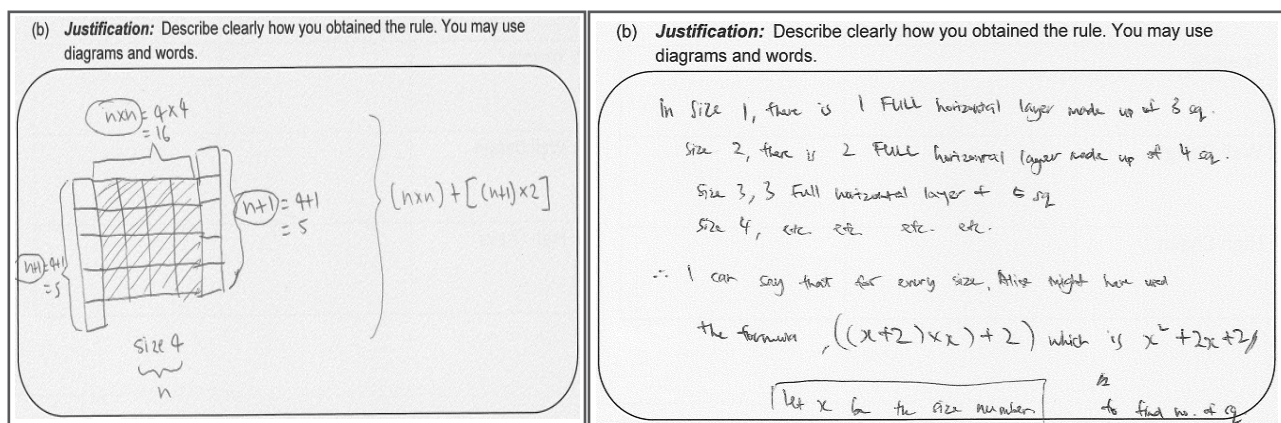 (b) Justification: Describe clearly how you obtained the rule. You may use
diagrams and words.
n×n = 4×4
= 16
n+1 = 4+1
= 5
(n×n) + [(n+1)×2]
n+1 = 4+1
= 5
size 4
n
(b) Justification: Describe clearly how you obtained the rule. You may use
diagrams and words.
In Size 1, there is 1 FULL horizontal layer made up of 3 sq.
Size 2, there is 2 FULL horizontal layer made up of 4 sq.
Size 3, 3 Full horizontal layer of 5 sq
Size 4, etc etc etc. etc.
∴ I can say that for every size, might have used
the formula, ((x+2)×x)+2) which is x² + 2x + 2
to find no. of sq
let x be the size number